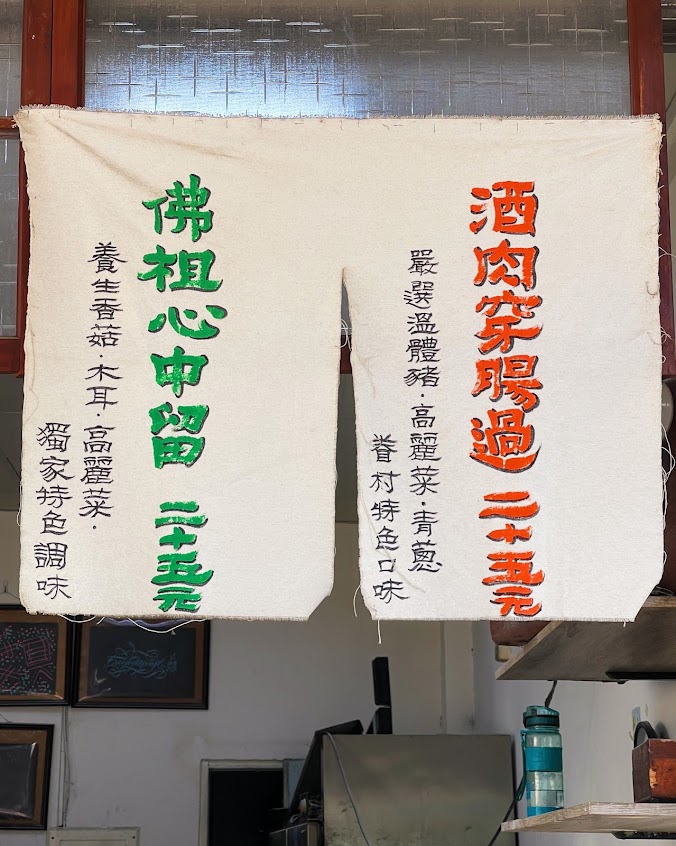 酒肉穿腸過 二十五元
嚴選溫體豬·高麗菜·青蔥
眷村特色口味
佛祖心中留 二十五元
養生香菇·木耳·高麗菜·
獨家特色調味